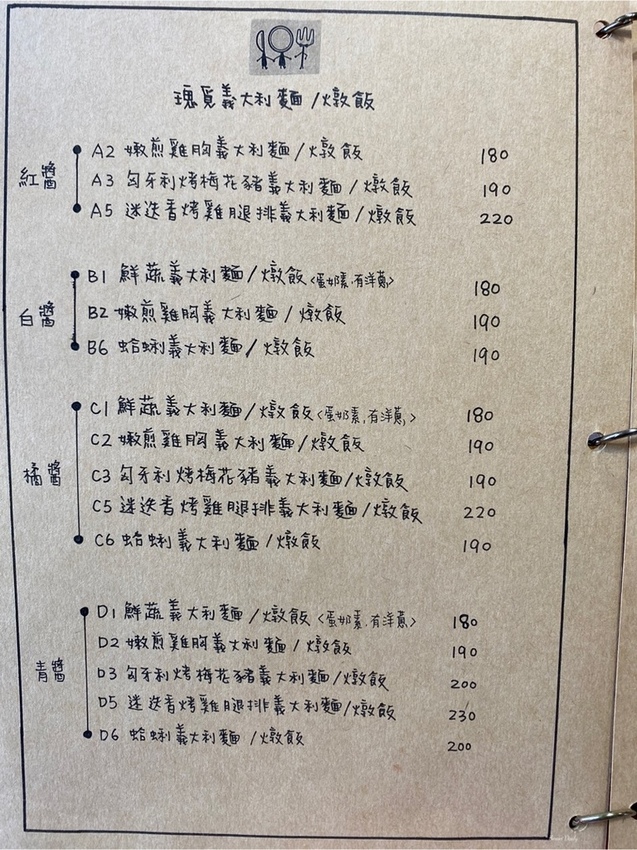 瑰覓義大利麵/燉飯
紅醬
A2 嫩煎雞胸義大利麵/燉飯 180
A3 匈牙利烤梅花豬義大利麵/燉飯 190
A5 迷迭香烤雞腿排義大利麵/燉飯 220
白醬
B1 鮮蔬義大利麵/燉飯<蛋奶素.有洋蔥> 180
B2 嫩煎雞胸義大利麵/燉飯 190
B6 蛤蜊義大利麵/燉飯 190
橘醬
C1 鮮蔬義大利麵/燉飯<蛋奶素,有洋蔥,> 180
C2 嫩煎雞胸義大利麵/燉飯 190
C3 匈牙利烤梅花豬義大利麵/燉飯 190
C5 迷迭香烤雞腿排義大利麵/燉飯 220
C6 蛤蜊義大利麵/燉飯 190
青醬
D1 鮮蔬義大利麵/燉飯<蛋奶素.有洋蔥> 180
D2 嫩煎雞胸義大利麵/燉飯 190
D3 匈牙利烤梅花豬義大利麵/燉飯 200
D5 迷迭香烤雞腿排義大利麵/燉飯 230
D6 蛤蜊義大利麵/燉飯 200